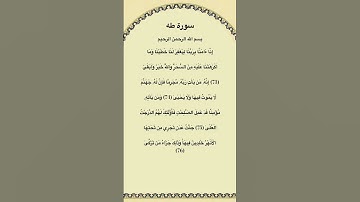 سورة طه
بسم الله الرحمن الرحيم
إِنَّا ءَامَنَّا بِرَبِّنَا لِيَغْفِرَ لَنَا خَطَٰيَٰنَا وَمَا
أَكْرَهْتَنَا عَلَيْهِ مِنَ السِّحْرِ وَاللَّهُ خَيْرٌ وَأَبْقَىٰ
(73) إِنَّهُ مَن يَأْتِ رَبَّهُ مُجْرِمًا فَإِنَّ لَهُ جَهَنَّمَ
لَا يَمُوتُ فِيهَا وَلَا يَحْيَىٰ (74) وَمَن يَأْتِهِ
مُؤْمِنًا قَدْ عَمِلَ الصَّٰلِحَٰتِ فَأُولَٰئِكَ لَهُمُ الدَّرَجَٰتُ
الْعُلَىٰ (75) جَنَّٰتُ عَدْنٍ تَجْرِي مِن تَحْتِهَا
الْأَنْهَٰرُ خَٰلِدِينَ فِيهَا وَذَٰلِكَ جَزَاءُ مَن تَزَكَّىٰ
(76)